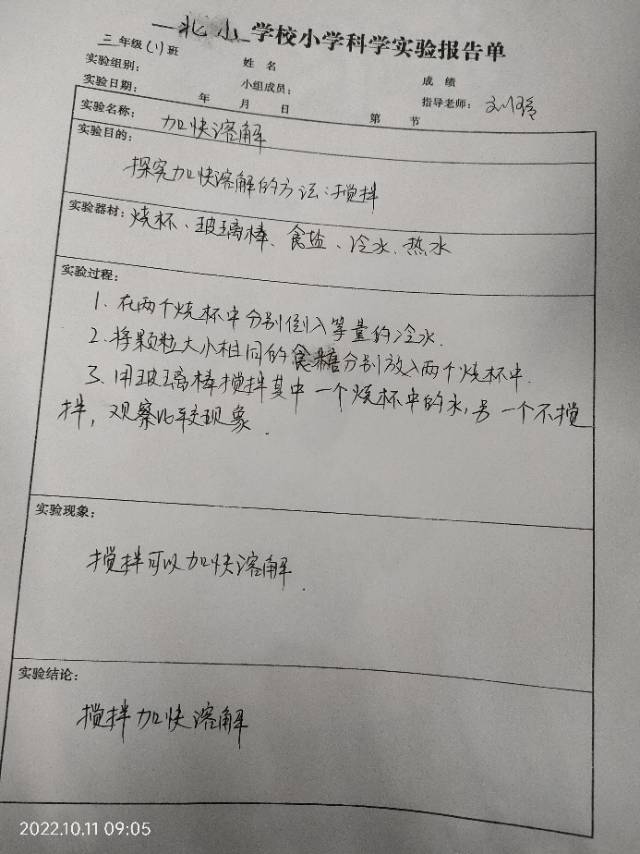 北小学校小学科学实验报告单
三年级(1)班 姓名 成绩
实验组别: 小组成员: 指导老师: 刘玲
实验日期: 年 月 日 第 节
实验名称: 加快溶解
实验目的:
探究加快溶解的方法:搅拌
实验器材: 烧杯、玻璃棒、食盐、冷水、热水
实验过程:
1. 在两个烧杯中分别倒入等量的冷水.
2. 将颗粒大小相同的食糖分别放入两个烧杯中.
3. 用玻璃棒搅拌其中一个烧杯中的水,另一个不搅
拌,观察比较现象.
实验现象:
搅拌可以加快溶解.
实验结论:
搅拌加快溶解
2022.10.11 09:05